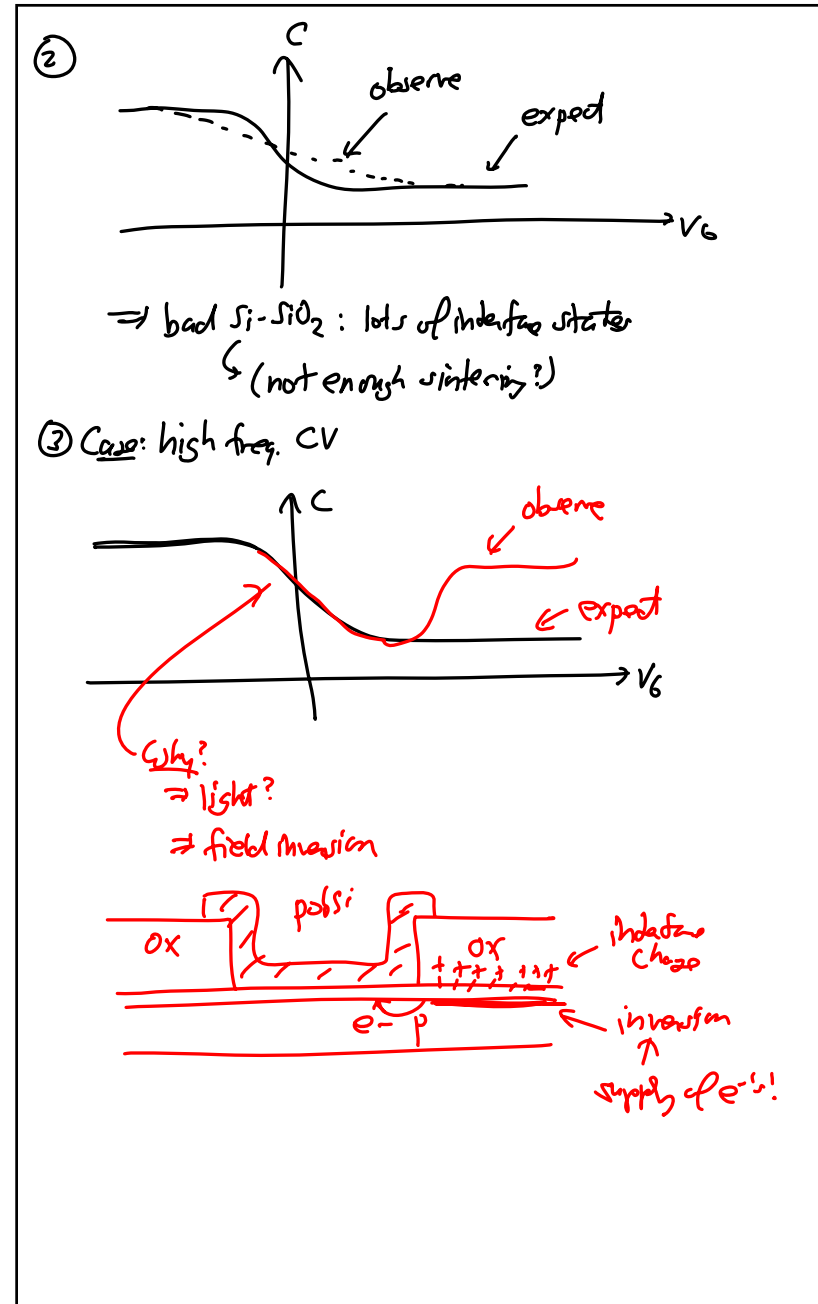 ②
C
observe
expect
V_G
⇒ bad Si-SiO₂: lots of interface states
↳ (not enough sintering?)
③ Case: high freq. CV
C
observe
expect
V_G
Why?
⇒ light?
⇒ field inversion
polySi
OX
OX
+ + + + + + + +
interface
charge
e- P
inversion
supply of e-'s!